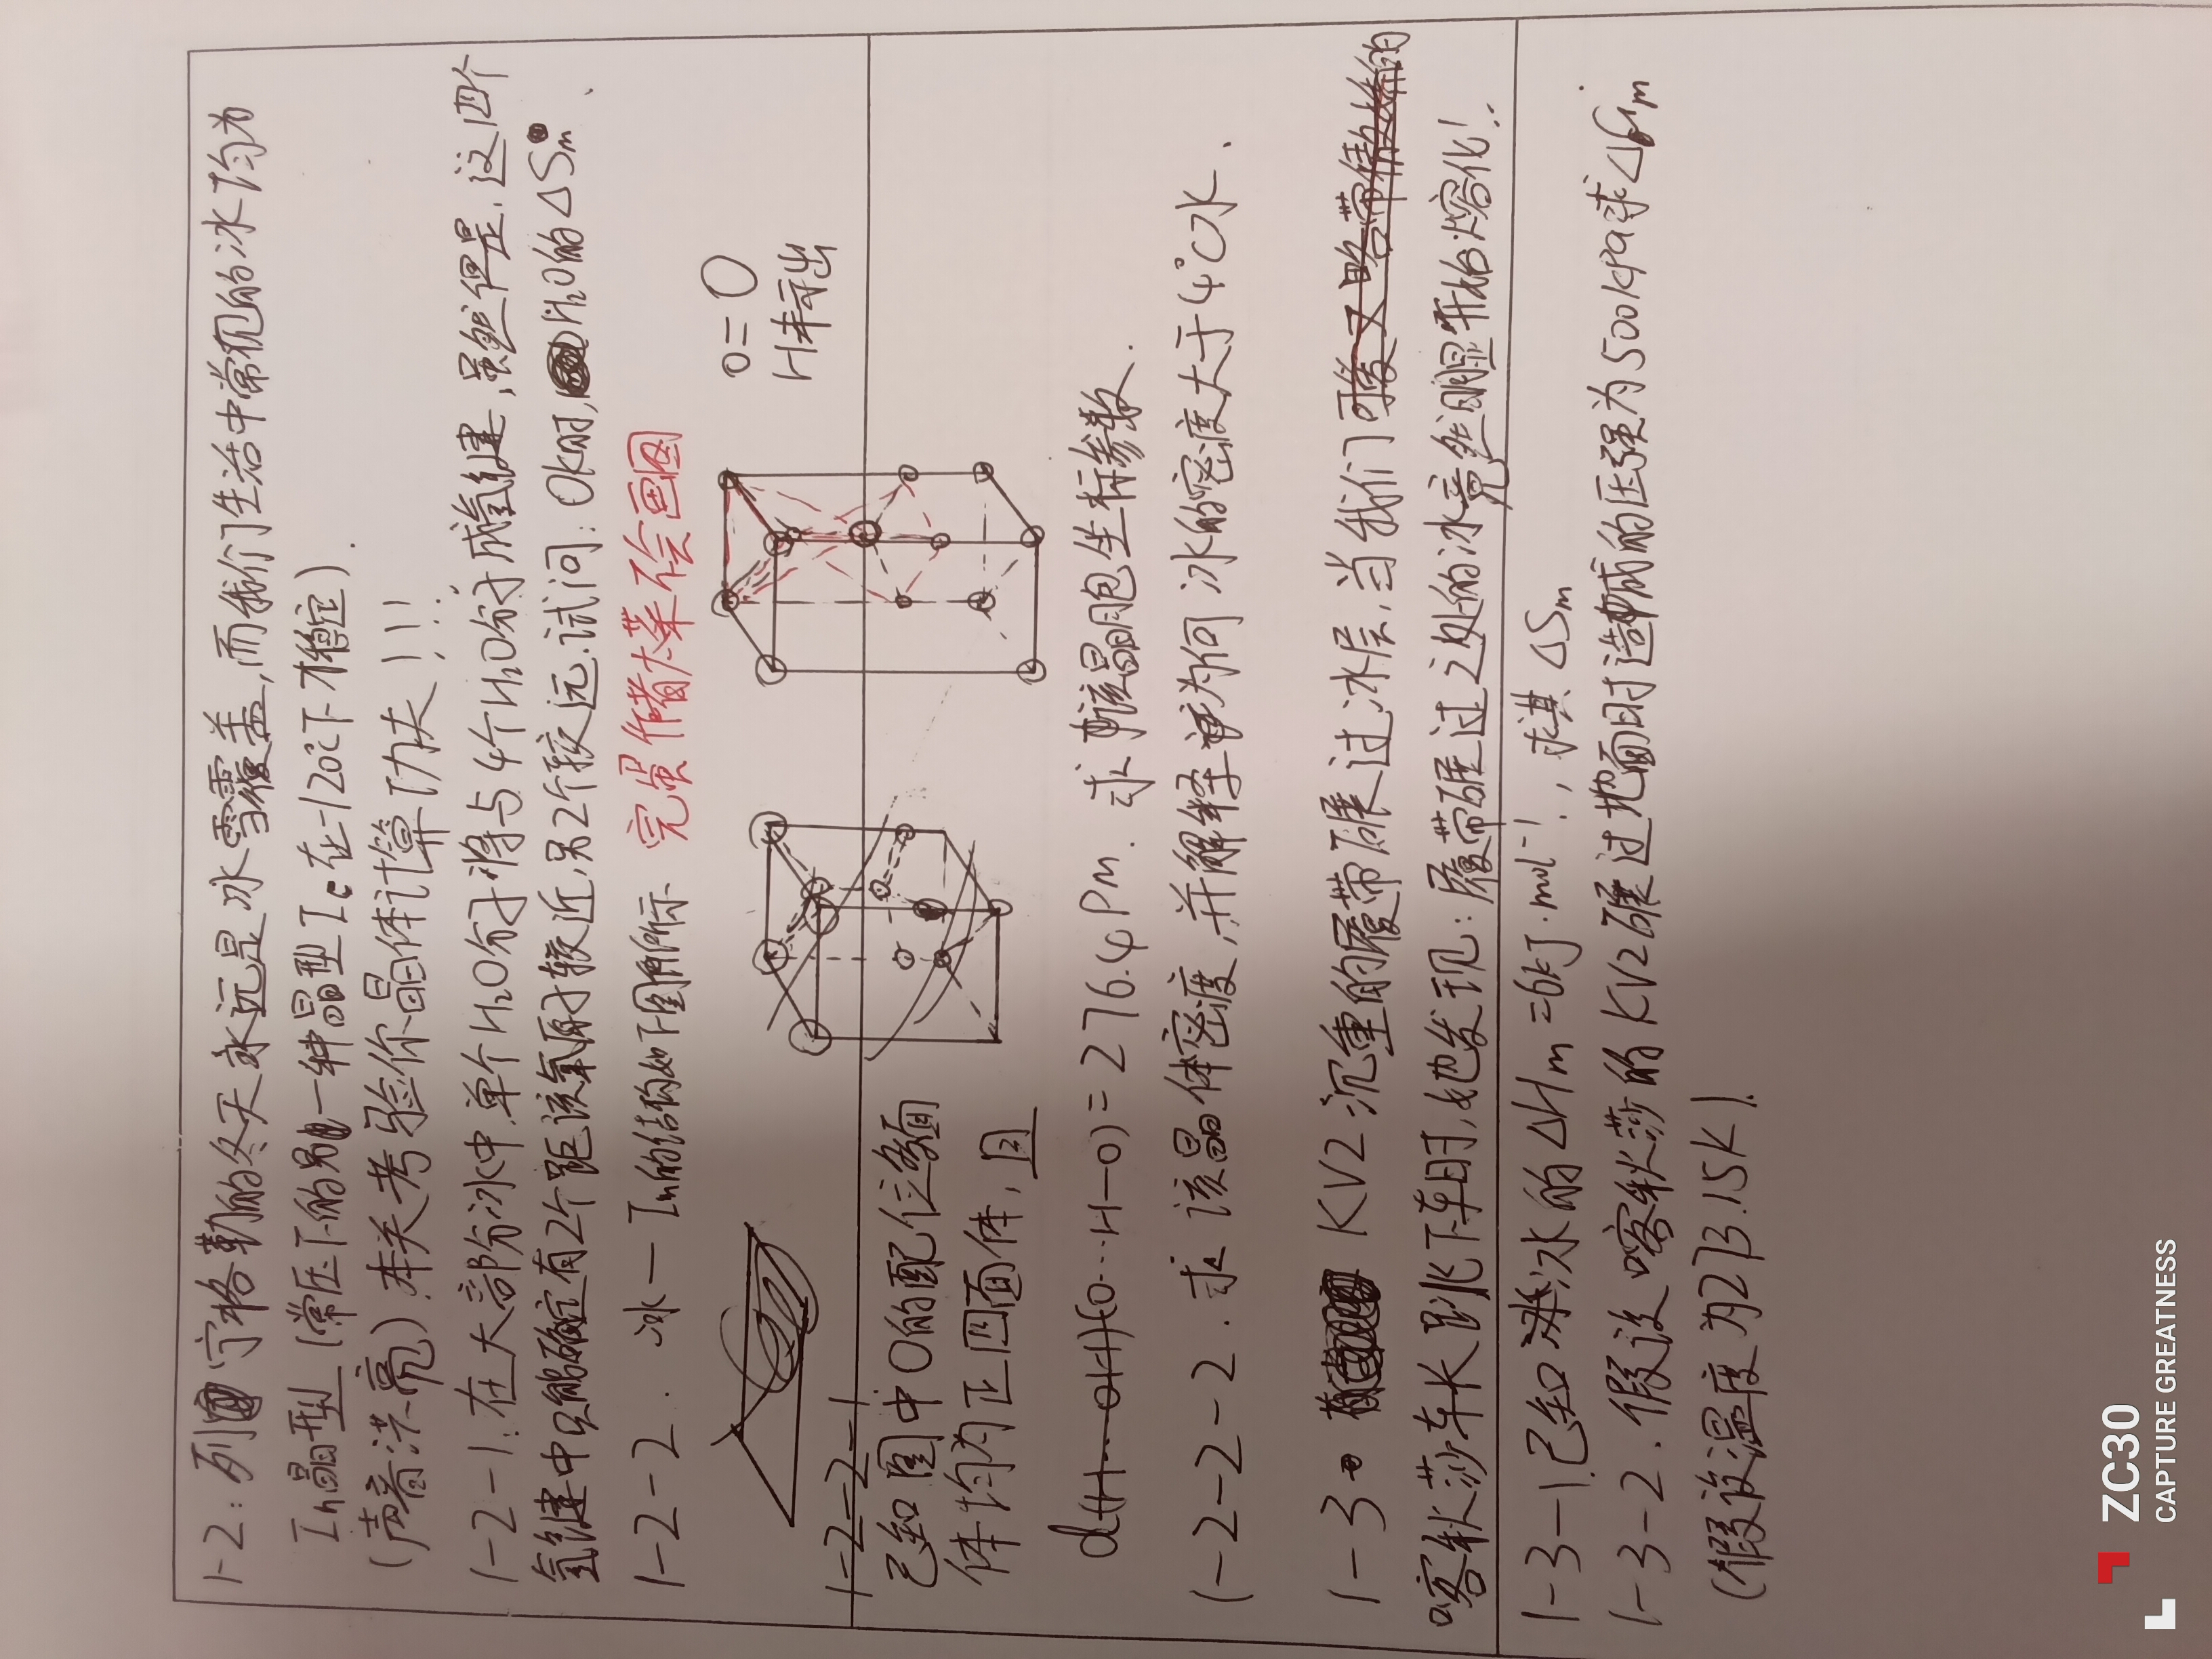 1-2:列宁格勒的冬天永远是冰雪覆盖,而我们生活中常见的冰均为
Iₕ晶型(常压下的另一种晶型Ic在-120℃下才稳定)
(声音洪亮)来关考验你晶体计算功夫!!!
1-2-1.在大部分冰中单个H₂O分子将与4个H₂O分子成氢键,虽然但是,这四个
氢键中只能确定有2个距该氧原子较近,另2个较远.试问:0K时,H₂O的ΔSₘ.
1-2-2.冰—Iₕ的结构如下图所示 完蛋作者太菜不会画图
o=O
H未示出
1-2-2-1
已知图中O的配位多面
体均为正四面体,且
d(H…OH)(O…H-O)=276.4Pm.求该晶胞坐标参数.
1-2-2-2.求该晶体密度,并解释为何冰的密度大于4℃水.
1-3. KV2沉重的履带碾过冰层,当我们可爱又略带傲娇的
喀秋莎车长跳下车时,她发现:履带碾过之处的冰竟然明显开始熔化!
1-3-1.已知冰的ΔHₘ=6kJ·mol⁻¹,求其ΔSₘ
1-3-2.假设喀秋莎的KV2碾过地面时造成的压强为500kPa求ΔGₘ
(假设温度为273.15K)
ZC30
CAPTURE GREATNESS